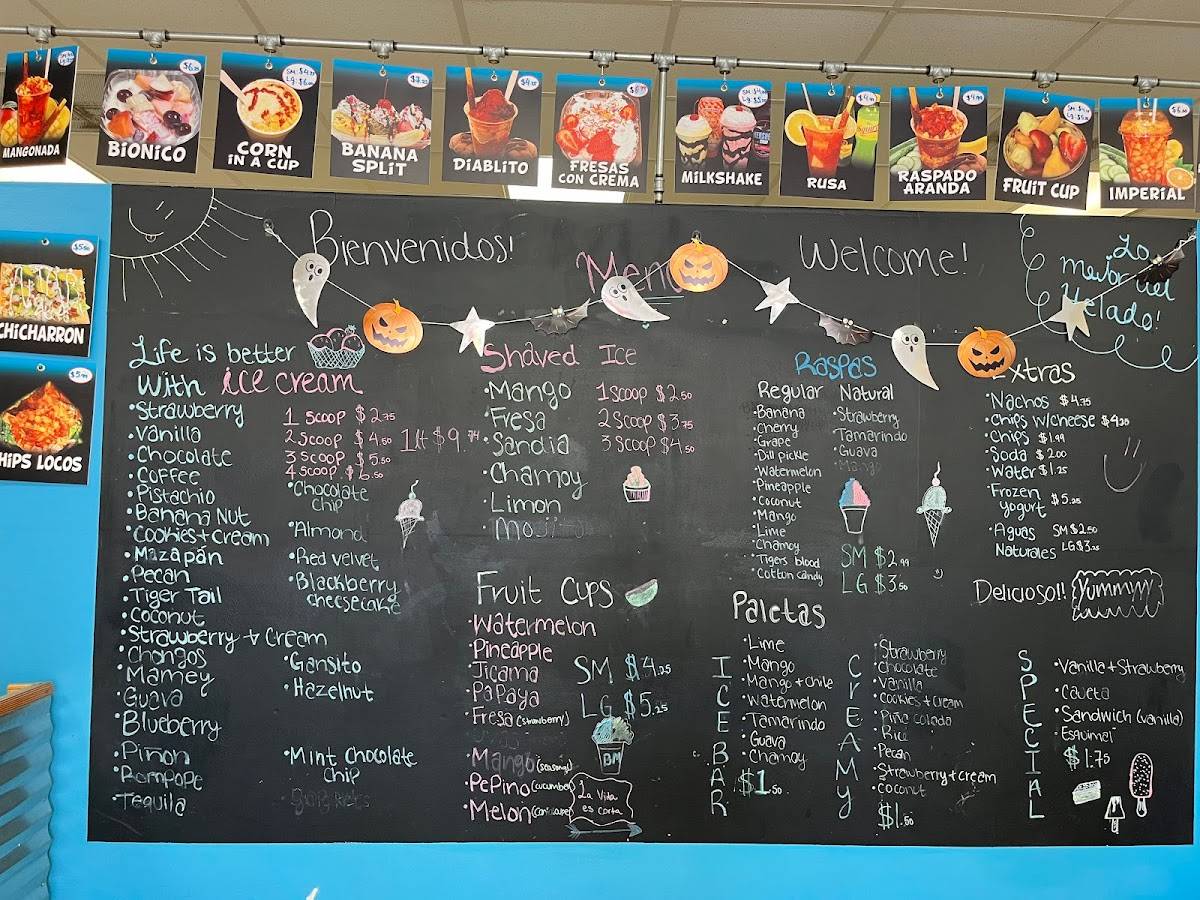 MANGONADA
$6.25
BIONICO
SM: $4.75
LG: $6.00
CORN
IN A CUP
$7.25
BANANA
SPLIT
DIABLITO
FRESAS
CON CREMA
MILKSHAKE
RUSA
RASPADO
ARANDA
FRUIT CUP
IMPERIAL
$5.50
CHICHARRON
CHIPS LOCOS
Bienvenidos!
Menu
Welcome!
Lo
mejor del
Helado!
Life is better
with ice cream
•Strawberry
•Vanilla
•Chocolate
•Coffee
•Pistachio
•Banana Nut
•Cookies+Cream
•Mazapán
•Pecan
•Tiger Tail
•Coconut
•Strawberry + Cream
•Chongos
•Mamey
•Guava
•Blueberry
•Piñon
•Rompope
•Tequila
1 scoop $2.75
2 scoop $4.50
3 scoop $5.50
4 scoop $6.50
•Chocolate
chip
•Almond
•Red velvet
•Blackberry
cheesecake
•Gansito
•Hazelnut
•Mint Chocolate
Chip
Shaved Ice
•Mango
•Fresa
•Sandia
•Chamoy
•Limon
•Mojito
1 scoop $2.50
2 scoop $3.75
3 scoop $4.50
Fruit Cups
•Watermelon
•Pineapple
•Jicama
•Papaya
•Fresa (strawberry)
•Mango
•Pepino (cucumber)
•Melon
SM $4.25
LG $5.25
BM
La Vita
es corta
Raspas
Regular
•Banana
•Cherry
•Grape
•Dill pickle
•Watermelon
•Pineapple
•Coconut
•Mango
•Lime
•Chamoy
•Tigers blood
•Cotton candy
Natural
•Strawberry
•Tamarindo
•Guava
•Mango
SM $2.99
LG $3.50
Extras
•Nachos $4.75
•Chips w/cheese $4.50
•Chips $1.99
•Soda $2.00
•Water $1.25
•Frozen
yogurt $5.25
•Aguas SM $2.50
Naturales LG $3.25
Delicioso!! Yummy
Paletas
ICE BAR
•Lime
•Mango
•Mango + Chile
•Watermelon
•Tamarindo
•Guava
•Chamoy
$1.50
CREAMY
•Strawberry
•Chocolate
•Vanilla
•Cookies + Cream
•Piña colada
•Rice
•Pecan
•Strawberry + cream
•Coconut
$1.50
SPECIAL
•Vanilla + Strawberry
•Cajeta
•Sandwich (vanilla)
•Esquimal
$1.75